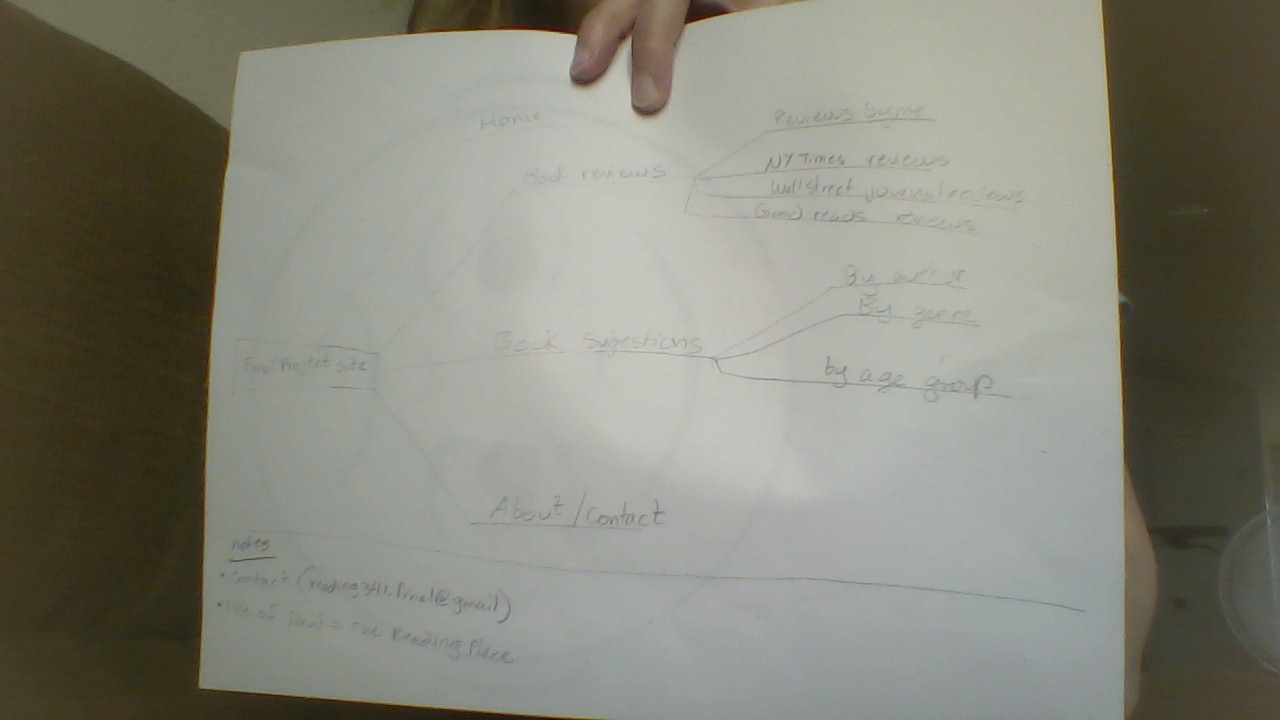 Home
Book reviews
Reviews by me
NY Times reviews
Wall street journal reviews
Good reads reviews
Final Project site
Book Sugestions
By author
By genre
by age group
About/Contact
notes
• Contact (reading341.final@gmail)
of final = The Reading Place